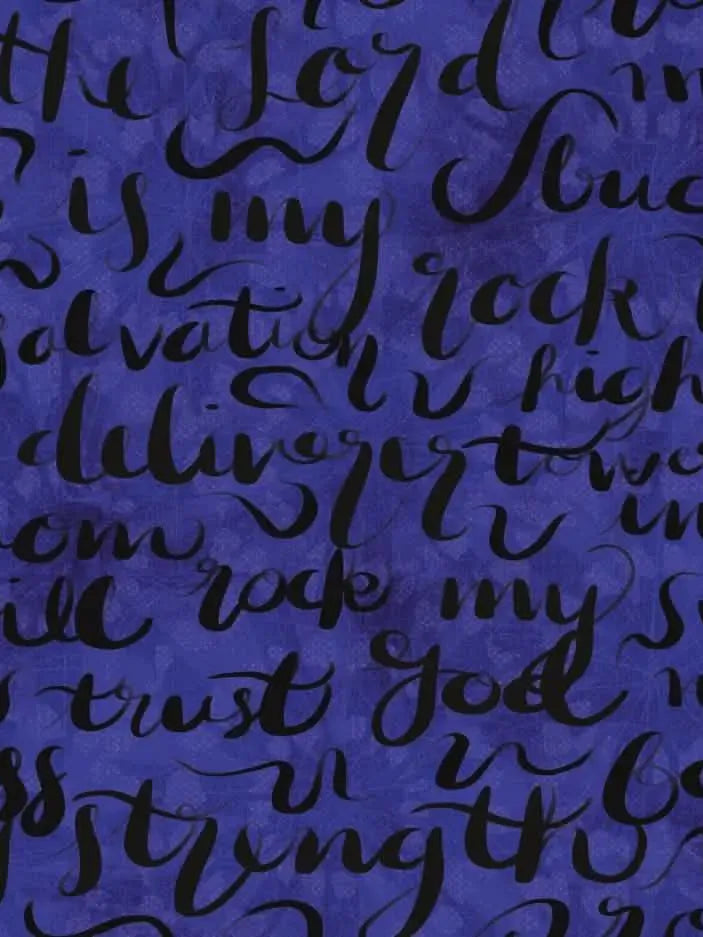 the Lord
is my buc
rock
salvation
high
deliverer
towe
in
rock my
trust God
strength